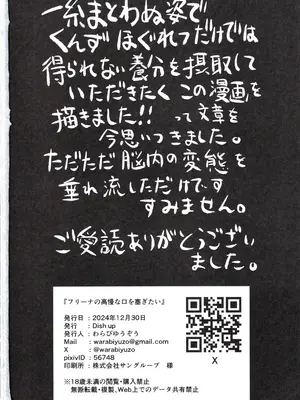 一糸まとわぬ姿で
くんずほぐれつだけでは
得られない養分を摂取して
いただきたくこの漫画を
描きました!!って文章を
今思いつきました。
ただただ脳内の変態を
垂れ流しただけです
すみません。
ご愛読ありがとうござい
ました。
『フリーナの高慢な口を塞ぎたい』
発行日:2024年12月30日
発行:Dish up
発行人:わらびゆうぞう
Mail:warabiyuzo@gmail.com
X:@warabiyuzo
pixivID:56748
印刷所:株式会社サングループ 様
X
※18歳未満の閲覧・購入禁止
無断転載・複製、Web上でのデータ共有禁止